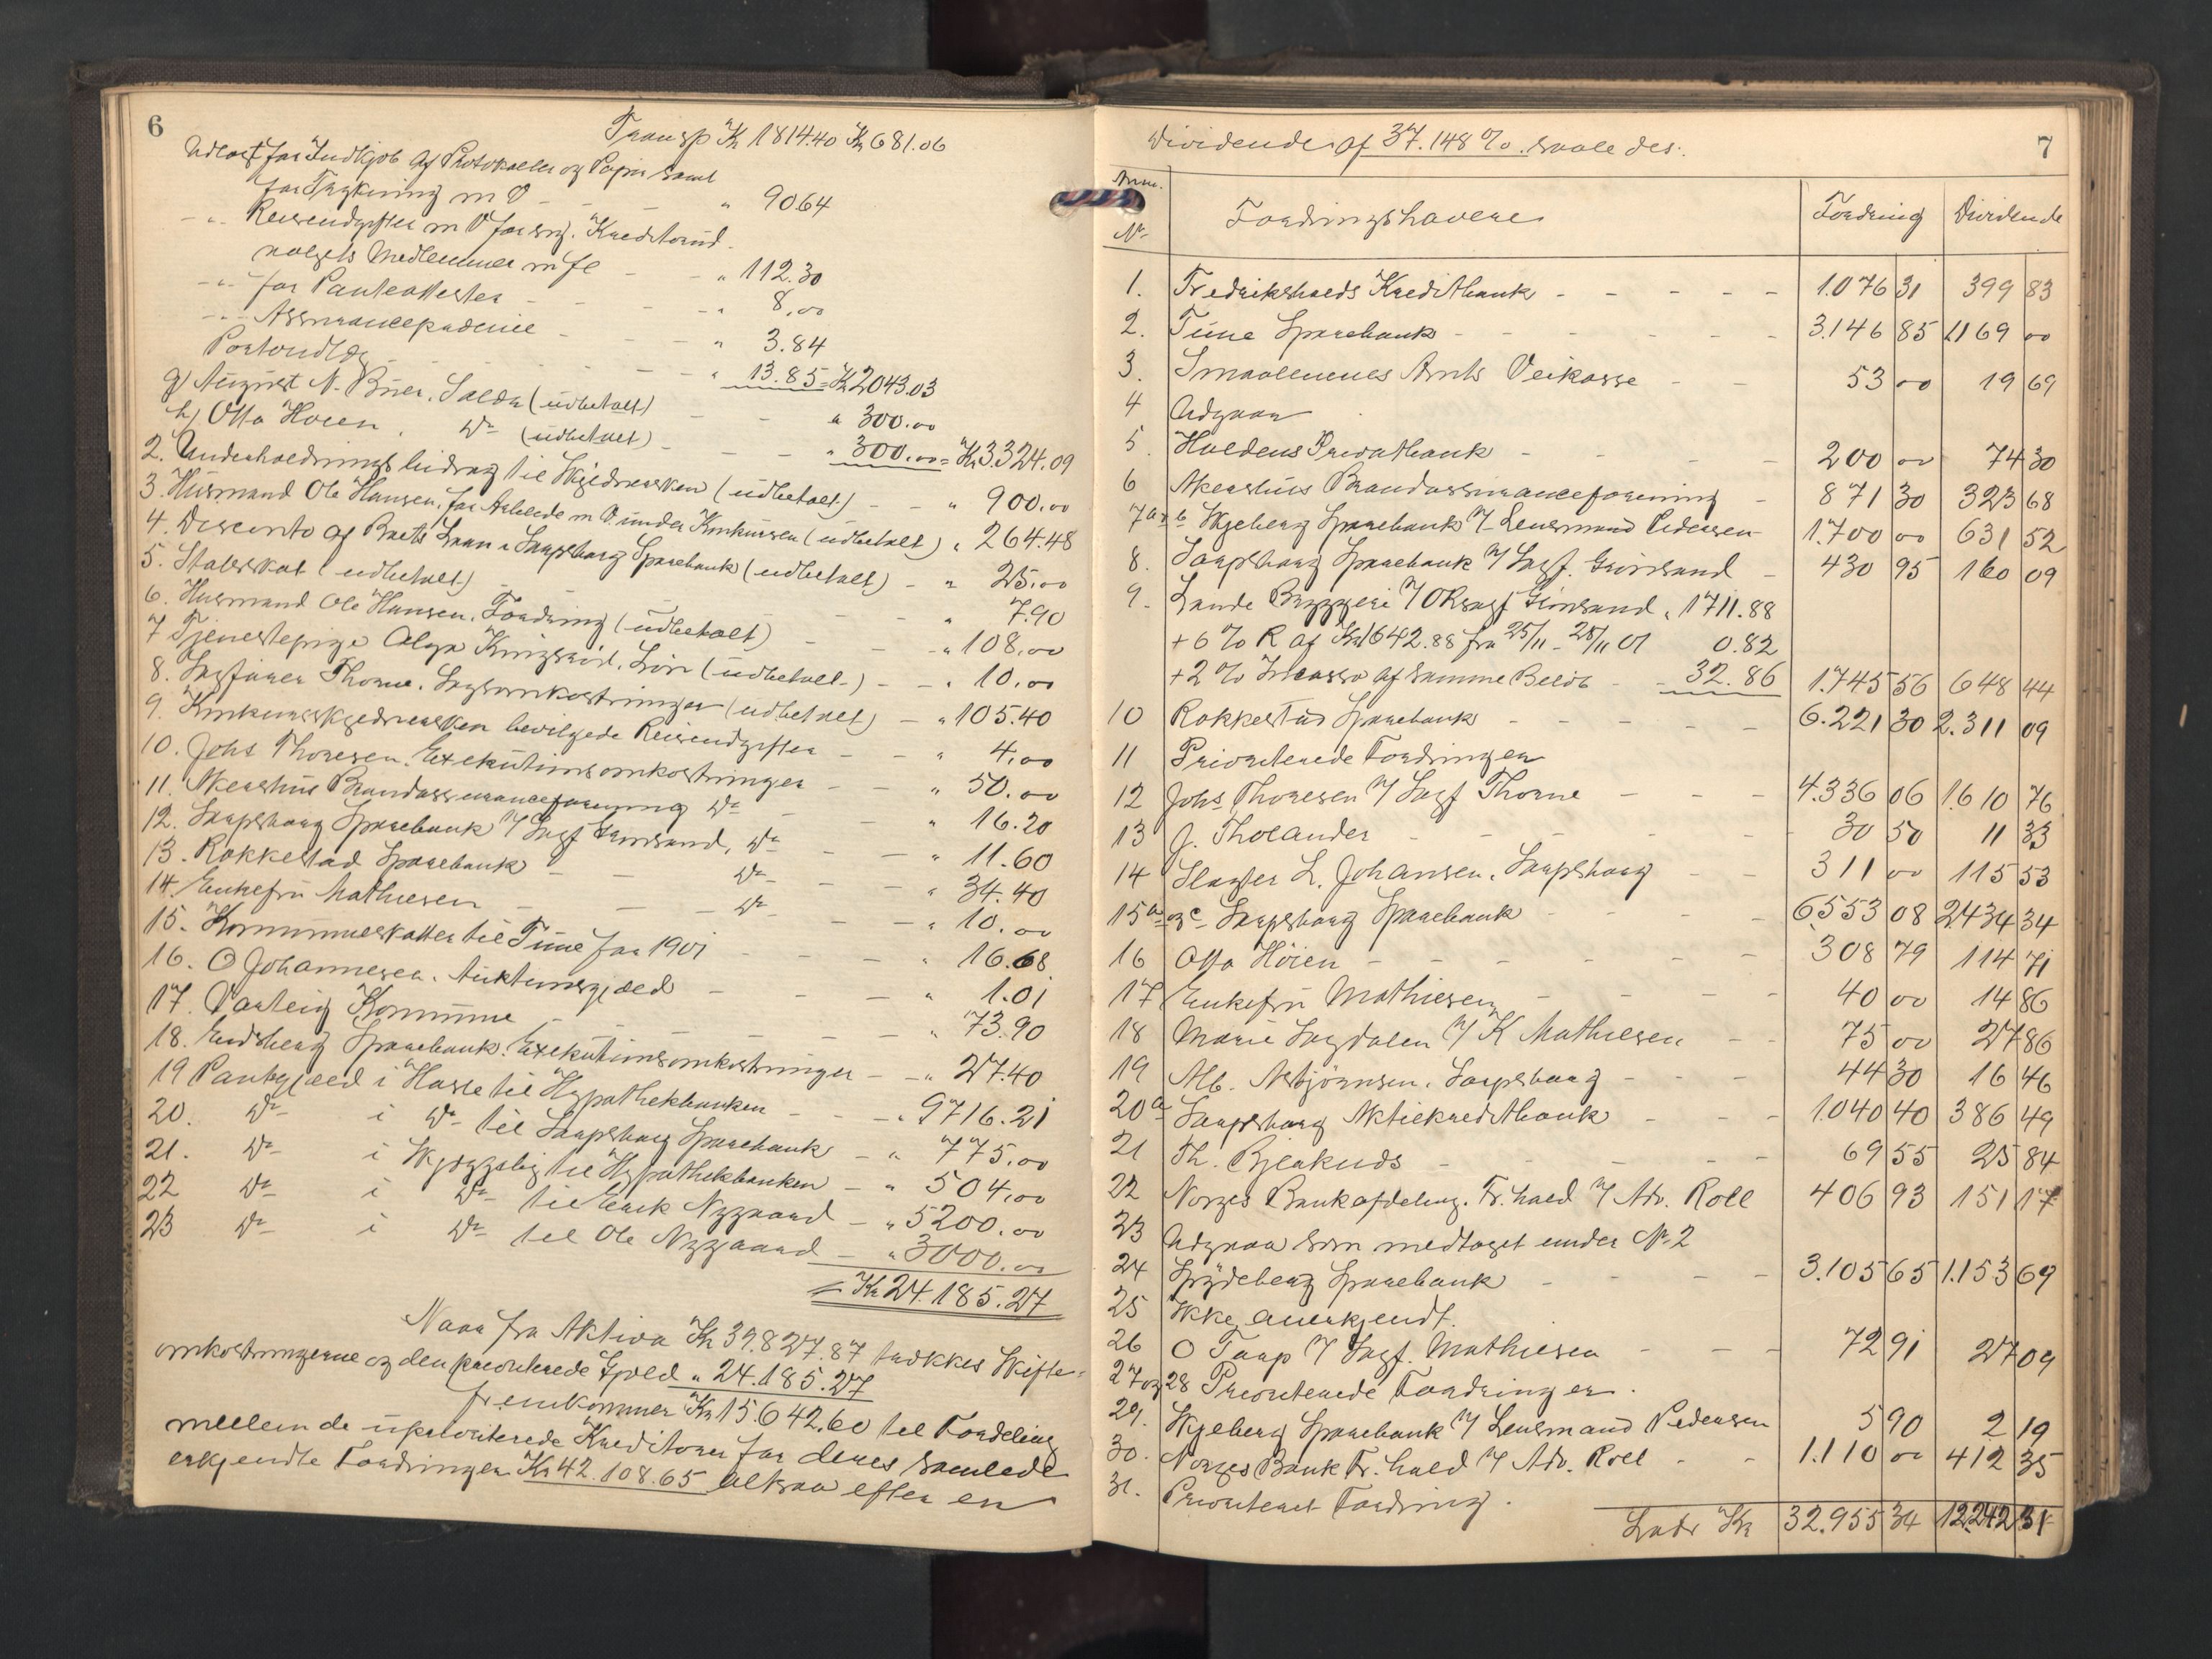 6
Transp Kr 1814.40 Kr 681.06
Udlagt for Indkjøb af Protokoller og Papir samt
for Trykning m V - - - " 90.64
- " - Reiseudgifter m V for
valgets Medlemmer m fl - - " 112.30
- " - for Panteattester - - - " 8,00
- " - Assurancepræmie - - - " 3.84
Portoudlæg - - - - " 13.85 = Kr 2043.03
g) August N. Buer. Salær (udbetalt) - - " 300.00
h) Otto Høien. Do (udbetalt) - - - " 300.00 = Kr 3.324.09
2. Underholdningsbidrag til Skyldnersken (udbetalt) - - " 900.00
3. Husmand Ole Hansen, for Arbeide m V. under Konkursen (udbetalt) " 264.48
4. Disconto af Boets Laan i Sarpsborg Sparebank (udbetalt) - " 25.00
5. Statsskat (udbetalt) - - - " 7.90
6. Husmand Ole Hansen. Fordring (udbetalt) - - " 108.00
7 Tjenestepige Olga Kingsrød. Løn (udbetalt) - - " 10.00
8. Sagfører Thorne. Sagsomkostninger (udbetalt) - " 105.40
9. Konkursskyldnersken bevilgede Reiseudgifter - - " 4,00
10. Johs Thoresen. Exekutionsomkostninger - - " 50.00
11. Akershus Brandassuranceforening Do - - " 16.20
12. Sarpsborg Sparebank v/ Sagf Grimsand, Do - - " 11.60
13. Rakkestad Sparebank - - Do - - " 34.40
14. Enkefru Mathiesen - - - Do - - " 10.00
15. Kommuneskatter til Tune for 1901 - - - " 16.68
16. O Johannesen. Auktionsgjæld - - - " 1.01
17. Varteig Kommune - - - - " 73.90
18. Eidsberg Sparebank. Exekutionsomkostninger - - " 27.40
19 Pantegjæld i Hasle til Hypothekbanken - - - " 9716.21
20. Do i Do til Sarpsborg Sparebank - " 775.00
21. Do i til Hypothekbanken - " 504,00
22 Do i Do til Nygaard - " 5200.00
23 Do i Do til Ole Nygaard - " 3000.00
= Kr 24.185.27
Naar fra Aktiva Kr 39.827.87 trækkes Skifte-
omkostningerne og den prioriterede Gjæld " 24.185.27
fremkommer Kr 15.642.60 til Fordeling
mellem de uprioriterede Kreditorer for deres samlede
erkjendte Fordringer Kr 42.108.65 altsaa efter en
7
Dividende af 37.148 %. saaledes:
Num. No Fordringshavere Fordring Dividende
1. Fredrikshalds Kreditbank - - - - - 1.076 31 399 83
2. Tune Sparebank - - - - - 3.146 85 1.169 00
3. Smaalenenes Amts Veikasse - - 53 00 19 69
4 Udgaar
5 Haldens Privatbank - - - 200 00 74 30
6 Akershus Brandassuranceforening - 871 30 323 68
7 a & b Skjeberg Sparebank v/ Lensmand Pedersen - 1.700 00 631 52
8. Sarpsborg Sparebank v/ Sagf. Grimsand - 430 95 160 09
9. Lande Bryggeri v/ ORsagf Grimsand " 1711.88
+ 6 % R af Kr 1642.88 fra 25/11 - 28/11 01 0.82
+ 2 % Incasso af samme Beløb - - 32.86 1.745 56 648 44
10 Rakkestad Sparebank - - - - - 6.221 30 2.311 09
11 Prioriterede Fordringer
12 Johs Thoresen v/ Sagf Thorne - - - 4.336 06 1.610 76
13 J. Tholander - - - - - 30 50 11 33
14 Slagter L. Johansen. Sarpsborg - - 311 00 115 53
15 a og c Sarpsborg Sparebank - - - - 6553 08 2434 34
16 Otto Höien - - - - - - 308 79 114 71
17 Enkefru Mathiesen - - - - 40 00 14 86
18 Marie Sagdalen v/ K Mathiesen - - 75 00 27 86
19 Alb. Asbjörnsen. Sarpsborg - - - 44 30 16 46
20 a Sarpsborg Aktiekreditbank - - 1040 40 386 49
21 Th. Bjerknds - - - - - 69 55 25 84
22 Norges Bankafdeling. Fr.hald v/ Adv. Roll 406 93 151 17
23 Udgaar som medtaget under No 2
24 Spydeberg Sparebank - - - - 3.105 65 1.153 69
25 Ikke anerkjendt.
26 O Taap v/ Sagf. Mathiesen - - - 72 91 27 09
27 og 28 Prioriterede Fordringer.
29. Skjeberg Sparebank v/ Lensmand Pedersen 5 90 2 19
30. Norges Bank Fr.hald v/ Adv. Roll - - 1.110 00 412 35
31. Prioriteret Fordring.
Latr Kr 32.955 34 12.242 31